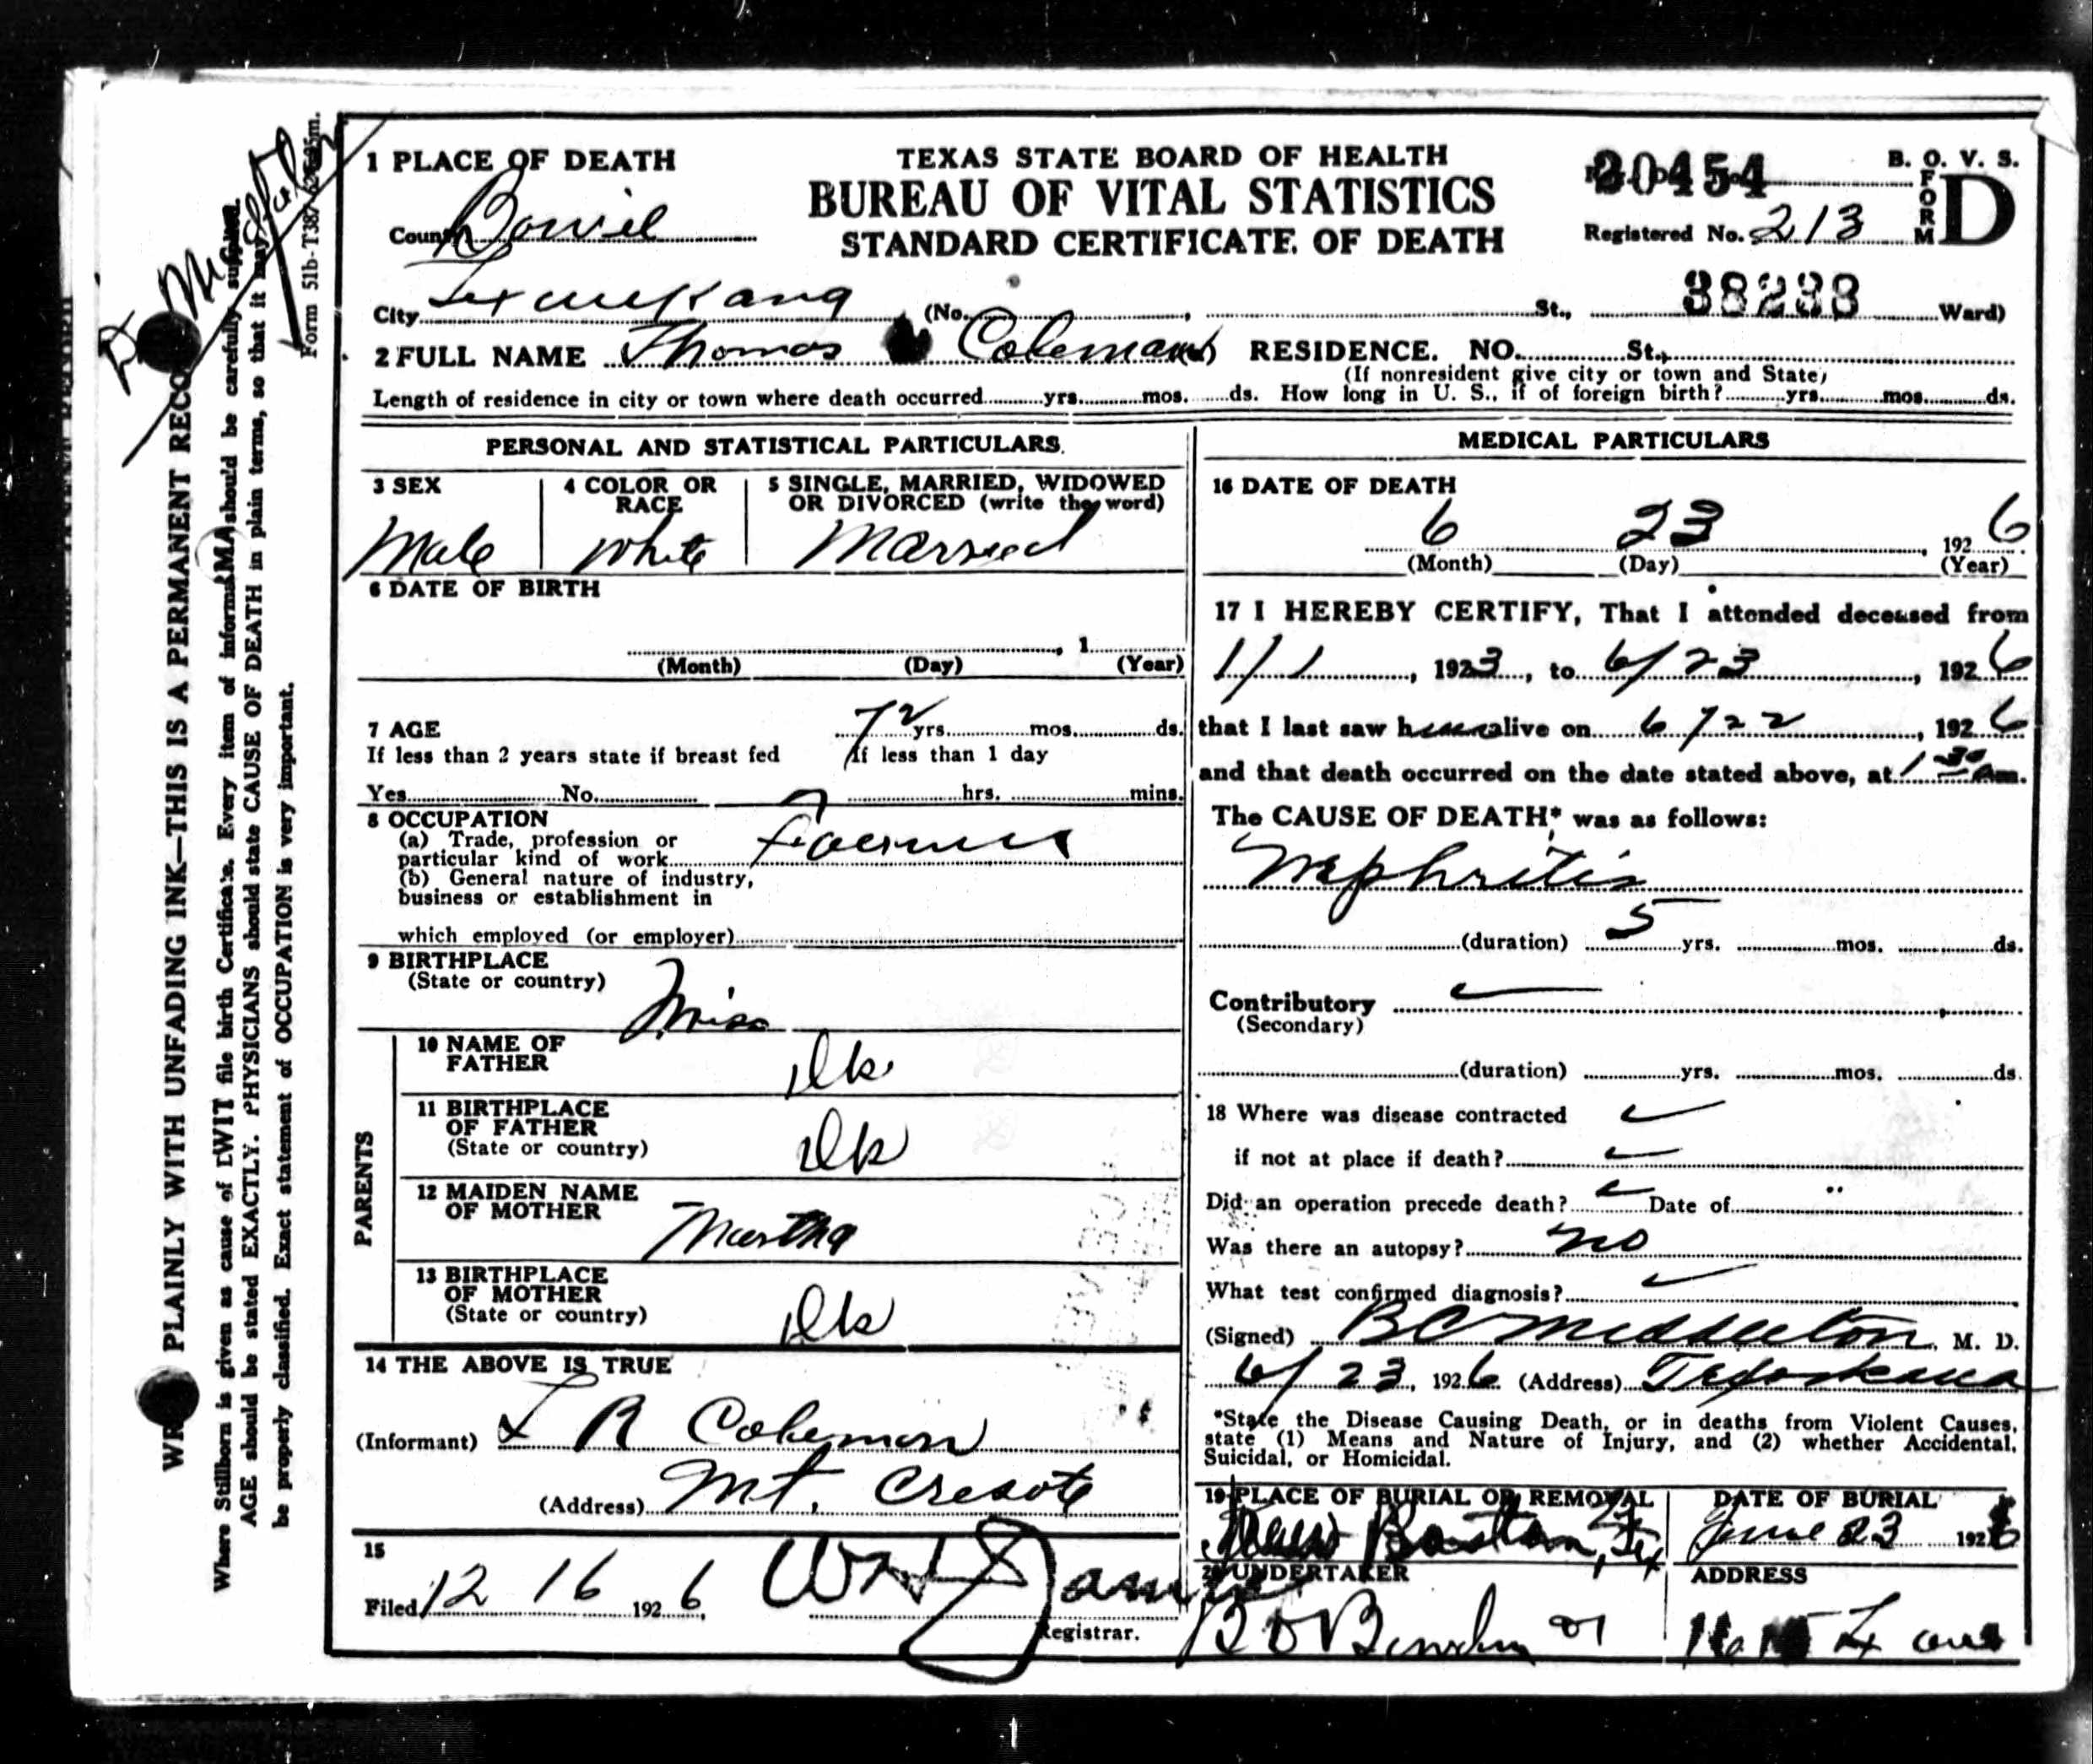 1 PLACE OF DEATH
TEXAS STATE BOARD OF HEALTH
BUREAU OF VITAL STATISTICS
STANDARD CERTIFICATE OF DEATH
20454
B. O. V. S.
FORM D
Registered No. 213
County Bowie
City Texarkana (No. , St., 38238 Ward)
2 FULL NAME Thomas Coleman RESIDENCE. NO. St.,
(If nonresident give city or town and State)
Length of residence in city or town where death occurred yrs. mos. ds. How long in U. S., if of foreign birth? yrs. mos. ds.
PERSONAL AND STATISTICAL PARTICULARS.
3 SEX
Male
4 COLOR OR RACE
White
5 SINGLE, MARRIED, WIDOWED
OR DIVORCED (write the word)
Married
6 DATE OF BIRTH
, 1
(Month) (Day) (Year)
7 AGE 72 yrs. mos. ds.
If less than 2 years state if breast fed If less than 1 day
Yes No. hrs. mins.
8 OCCUPATION
(a) Trade, profession or
particular kind of work Farmer
(b) General nature of industry,
business or establishment in
which employed (or employer)
9 BIRTHPLACE
(State or country) Miss
PARENTS
10 NAME OF
FATHER Dk
11 BIRTHPLACE
OF FATHER
(State or country) Dk
12 MAIDEN NAME
OF MOTHER Martha
13 BIRTHPLACE
OF MOTHER
(State or country) Dk
14 THE ABOVE IS TRUE
(Informant) L R Coleman
(Address) Mt. Cresote
15
Filed 12 16 1926
Registrar.
MEDICAL PARTICULARS
16 DATE OF DEATH
6 23 , 1926
(Month) (Day) (Year)
17 I HEREBY CERTIFY, That I attended deceased from
1/1 , 1923, to 6/23 , 1926
that I last saw him alive on 6/22 , 1926
and that death occurred on the date stated above, at 1 30 am.
The CAUSE OF DEATH* was as follows:
Nephritis
(duration) 5 yrs. mos. ds.
Contributory
(Secondary)
(duration) yrs. mos. ds.
18 Where was disease contracted
if not at place if death?
Did an operation precede death? Date of
Was there an autopsy? no
What test confirmed diagnosis?
(Signed) BC Middleton, M. D.
6/23, 1926 (Address) Texarkana
*State the Disease Causing Death, or in deaths from Violent Causes,
state (1) Means and Nature of Injury, and (2) whether Accidental,
Suicidal, or Homicidal.
19 PLACE OF BURIAL OR REMOVAL
New Boston, Tex
DATE OF BURIAL
June 23 1926
20 UNDERTAKER
ADDRESS
PLAINLY WITH UNFADING INK—THIS IS A PERMANENT RECO
Where Stillborn is given as cause of file birth Certificate. Every item of should be carefully supplied.
AGE should be stated EXACTLY. PHYSICIANS should state CAUSE OF DEATH in plain terms, so that it may
be properly classified. Exact statement of OCCUPATION is very important.
Form 51b-T387